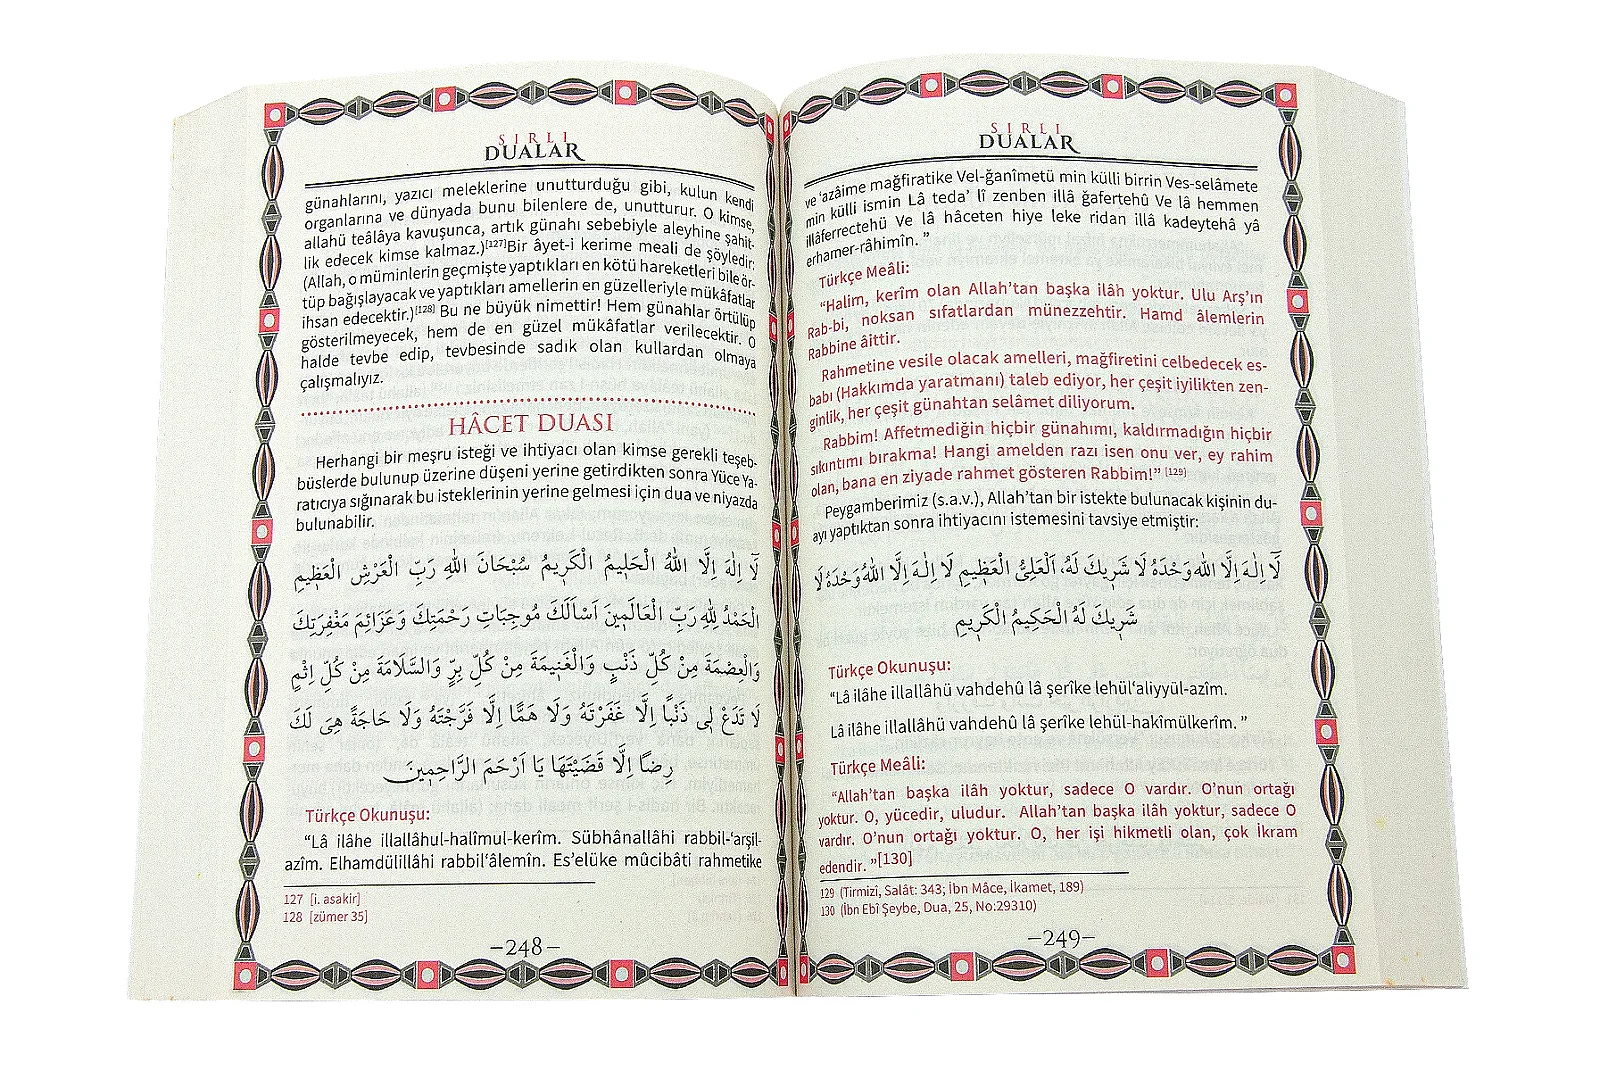 SIRLI
DUALAR
günahlarını, yazıcı meleklerine unutturduğu gibi, kulun kendi
organlarına ve dünyada bunu bilenlere de, unutturur. O kimse,
allahü teâlâya kavuşunca, artık günahı sebebiyle aleyhine şahit-
lik edecek kimse kalmaz.)[127]Bir âyet-i kerime meali de şöyledir:
(Allah, o müminlerin geçmişte yaptıkları en kötü hareketleri bile ör-
tüp bağışlayacak ve yaptıkları amellerin en güzelleriyle mükâfatlar
ihsan edecektir.)[128] Bu ne büyük nimettir! Hem günahlar örtülüp
gösterilmeyecek, hem de en güzel mükâfatlar verilecektir. O
halde tevbe edip, tevbesinde sadık olan kullardan olmaya
çalışmalıyız.
HÂCET DUASI
Herhangi bir meşru isteği ve ihtiyacı olan kimse gerekli teşeb-
büslerde bulunup üzerine düşeni yerine getirdikten sonra Yüce Ya-
ratıcıya sığınarak bu isteklerinin yerine gelmesi için dua ve niyazda
bulunabilir.
لَا اِلٰهَ اِلَّا اللهُ الْحَلِيمُ الْكَرِيمُ سُبْحَانَ اللهِ رَبِّ الْعَرْشِ الْعَظِيمِ
اَلْحَمْدُ لِلّٰهِ رَبِّ الْعَالَمِينَ اَسْاَلُكَ مُوجِبَاتِ رَحْمَتِكَ وَعَزَائِمَ مَغْفِرَتِكَ
وَالْعِصْمَةَ مِنْ كُلِّ ذَنْبٍ وَالْغَنِيمَةَ مِنْ كُلِّ بِرٍّ وَالسَّلَامَةَ مِنْ كُلِّ اِثْمٍ
لَا تَدَعْ لِى ذَنْبًا اِلَّا غَفَرْتَهُ وَلَا هَمًّا اِلَّا فَرَّجْتَهُ وَلَا حَاجَةً هِىَ لَكَ
رِضًا اِلَّا قَضَيْتَهَا يَا اَرْحَمَ الرَّاحِمِينَ
Türkçe Okunuşu:
“Lâ ilâhe illallâhul-halîmul-kerîm. Sübhânallâhi rabbil-‘arşil-
azîm. Elhamdülillâhi rabbil‘âlemîn. Es’elüke mûcibâti rahmetike
127 [i. asakir]
128 [zümer 35]
–248–
SIRLI
DUALAR
ve ‘azâime mağfiratike Vel-ğanîmetü min külli birrin Ves-selâmete
min külli ismin Lâ teda’ lî zenben illâ ğafertehû Ve lâ hemmen
illâferrectehü Ve lâ hâceten hiye leke ridan illâ kadeytehâ yâ
erhamer-râhimîn. ”
Türkçe Meâli:
“Halim, kerîm olan Allah’tan başka ilâh yoktur. Ulu Arş’ın
Rab-bi, noksan sıfatlardan münezzehtir. Hamd âlemlerin
Rabbine âittir.
Rahmetine vesile olacak amelleri, mağfiretini celbedecek es-
babı (Hakkımda yaratmanı) taleb ediyor, her çeşit iyilikten zen-
ginlik, her çeşit günahtan selâmet diliyorum.
Rabbim! Affetmediğin hiçbir günahımı, kaldırmadığın hiçbir
sıkıntımı bırakma! Hangi amelden razı isen onu ver, ey rahim
olan, bana en ziyade rahmet gösteren Rabbim!” [129]
Peygamberimiz (s.a.v.), Allah’tan bir istekte bulunacak kişinin du-
ayı yaptıktan sonra ihtiyacını istemesini tavsiye etmiştir:
لَا اِلٰهَ اِلَّا اللهُ وَحْدَهُ لَا شَرِيكَ لَهُ، اَلْعَلِىُّ الْعَظِيمِ لَا اِلٰهَ اِلَّا اللهُ وَحْدَهُ لَا
شَرِيكَ لَهُ الْحَكِيمُ الْكَرِيمِ
Türkçe Okunuşu:
“Lâ ilâhe illallâhü vahdehû lâ şerîke lehül‘aliyyül-azîm.
Lâ ilâhe illallâhü vahdehû lâ şerîke lehül-hakîmülkerîm. ”
Türkçe Meâli:
“Allah’tan başka ilâh yoktur, sadece O vardır. O’nun ortağı
yoktur. O, yücedir, uludur. Allah’tan başka ilâh yoktur, sadece O
vardır. O’nun ortağı yoktur. O, her işi hikmetli olan, çok İkram
edendir. ”[130]
129 (Tirmizî, Salât: 343; İbn Mâce, İkamet, 189)
130 (İbn Ebî Şeybe, Dua, 25, No:29310)
–249–